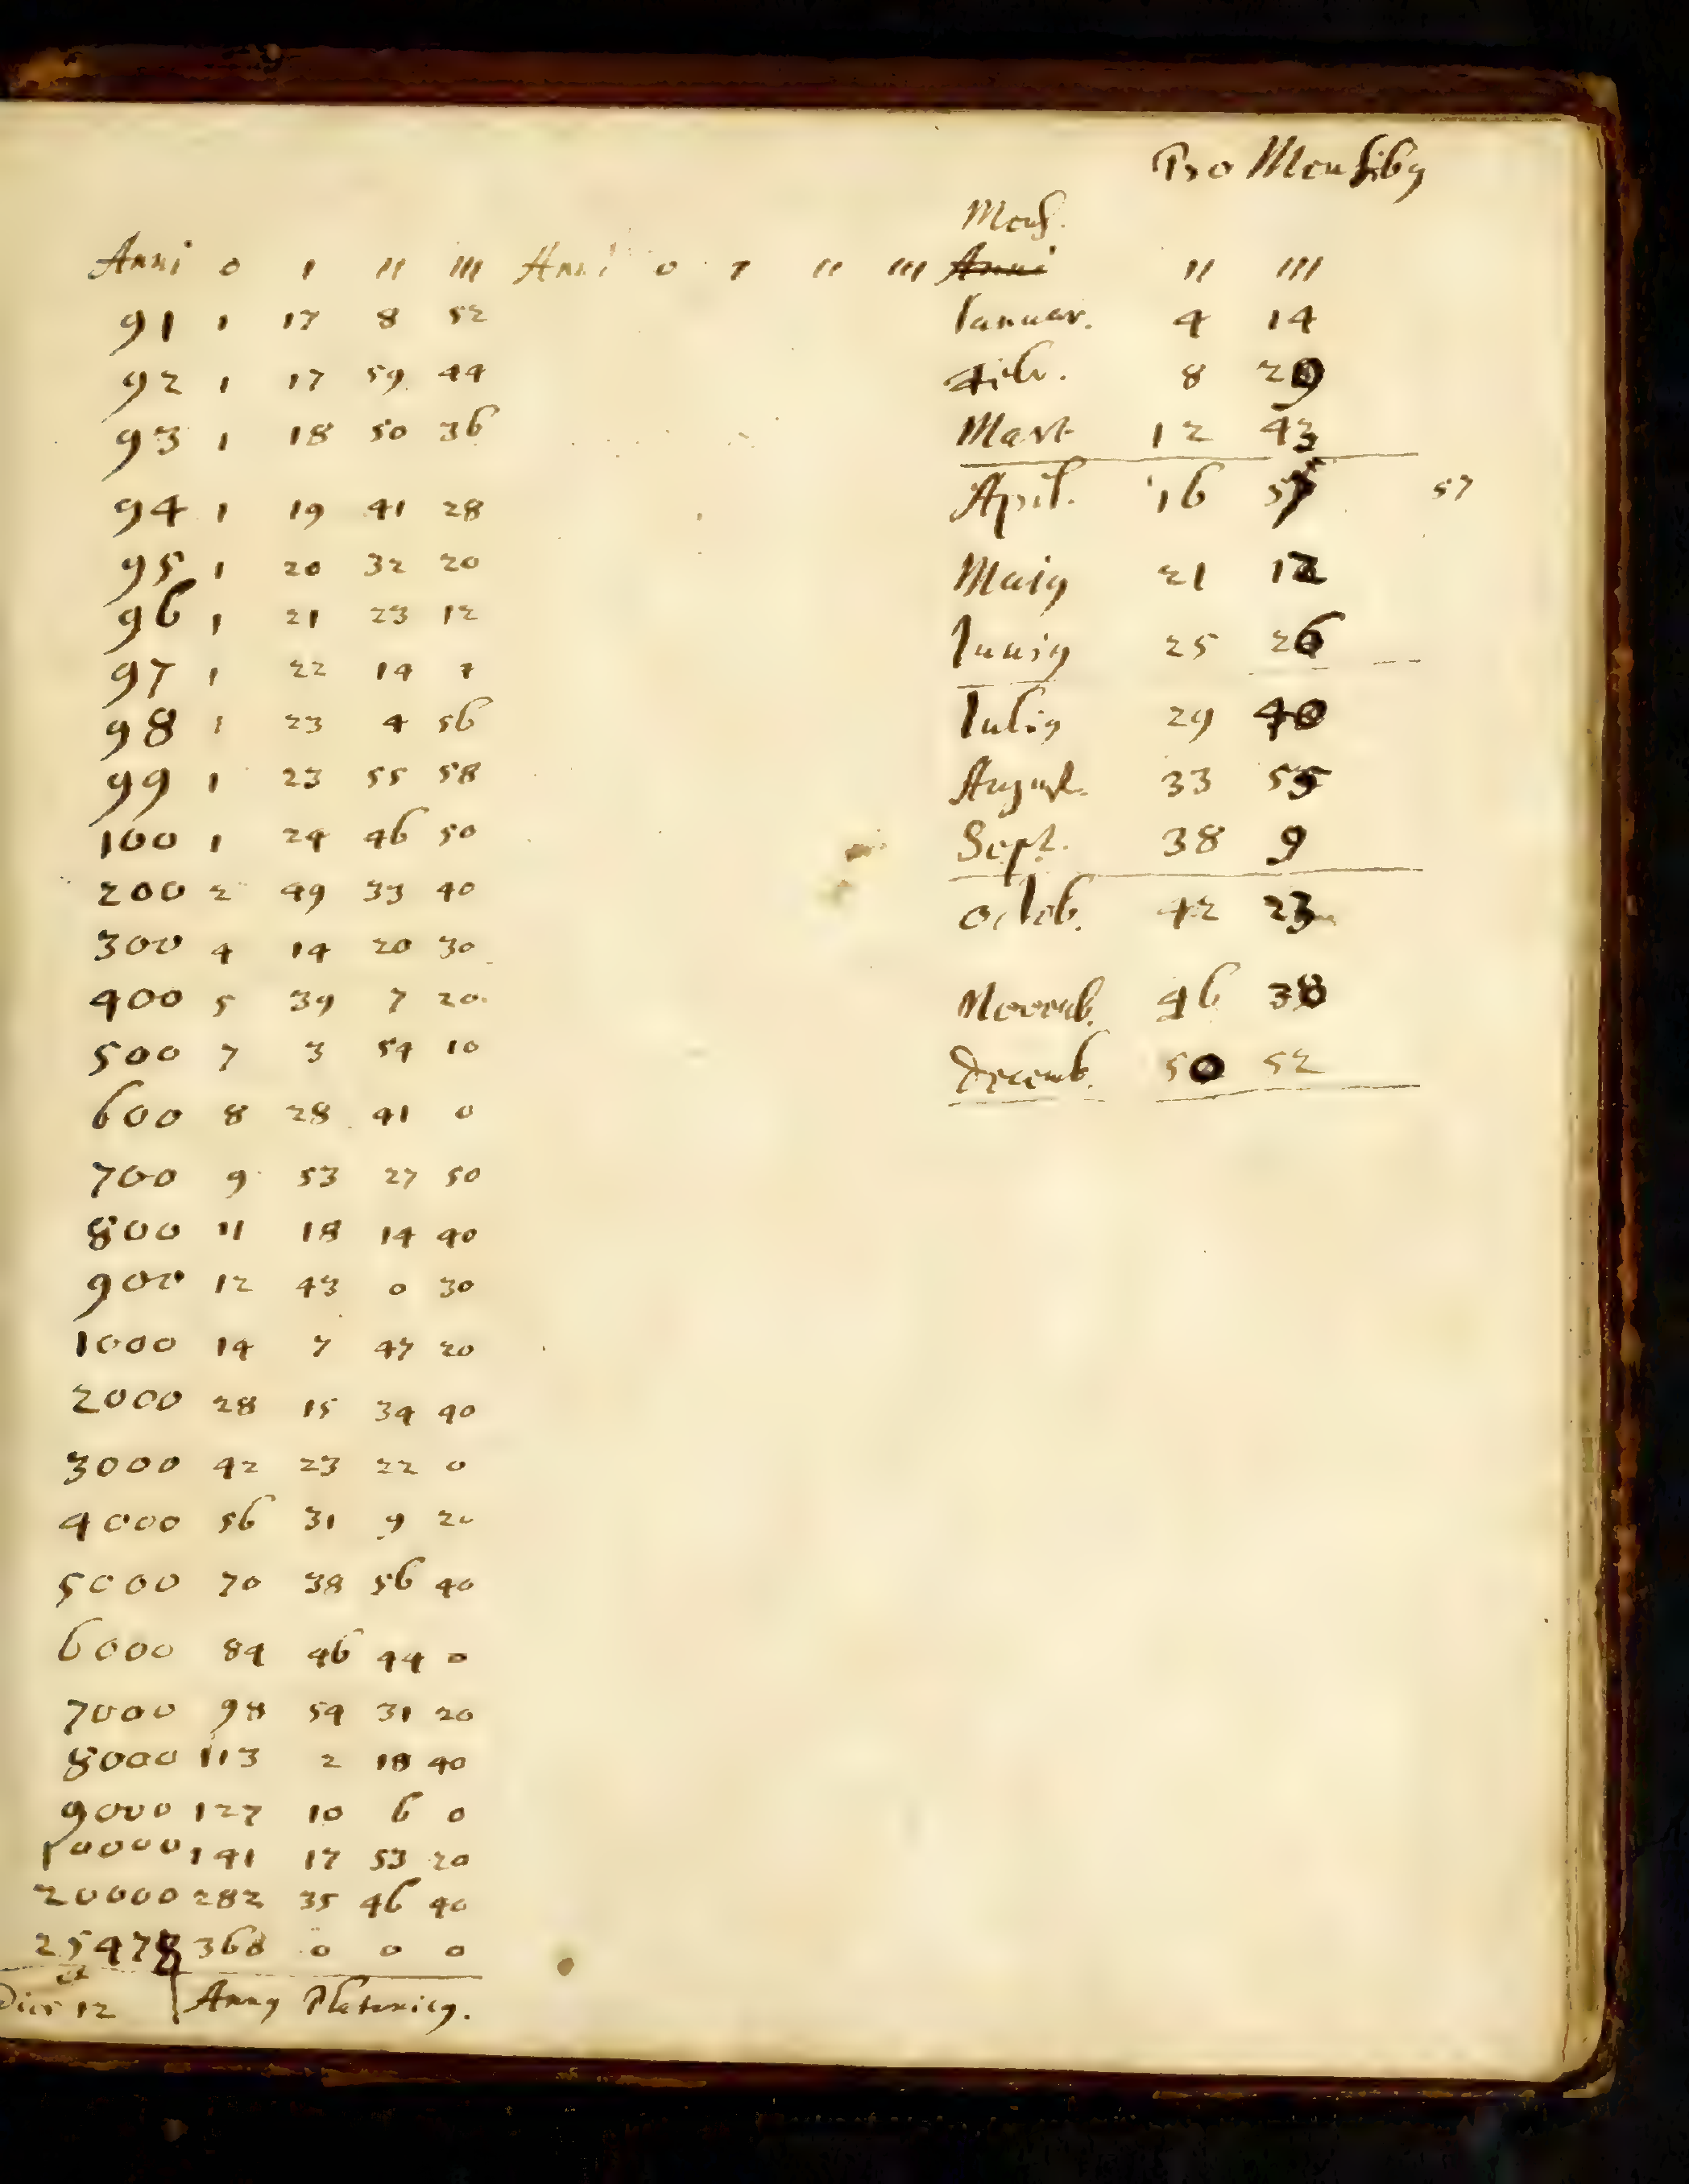 Pro Mensibq
Mens.
Anni 0 I II III Anni 0 I II III Anni II III
91 1 17 8 52
92 1 17 59 44
93 1 18 50 36
94 1 19 41 28
95 1 20 32 20
96 1 21 23 12
97 1 22 14 4
98 1 23 4 56
99 1 23 55 58
100 1 24 46 50
200 2 49 33 40
300 4 14 20 30
400 5 39 7 20
500 7 3 54 10
600 8 28 41 0
700 9 53 27 50
800 11 18 14 40
900 12 43 0 30
1000 14 7 47 20
2000 28 15 34 40
3000 42 23 22 0
4000 56 31 9 20
5000 70 38 56 40
6000 84 46 44 0
7000 98 54 31 20
8000 113 2 18 40
9000 127 10 6 0
10000 141 17 53 20
20000 282 35 46 40
25478 360 0 0 0
et
Dies 12 Annq Platonicq.
Januar. 4 14
Feb. 8 29
Mart 12 43
April. 16 57 57
Maiq 21 12
Juniq 25 26
Juliq 29 40
August. 33 55
Sept. 38 9
Octob. 42 23
Novemb. 46 38
Decemb. 50 52